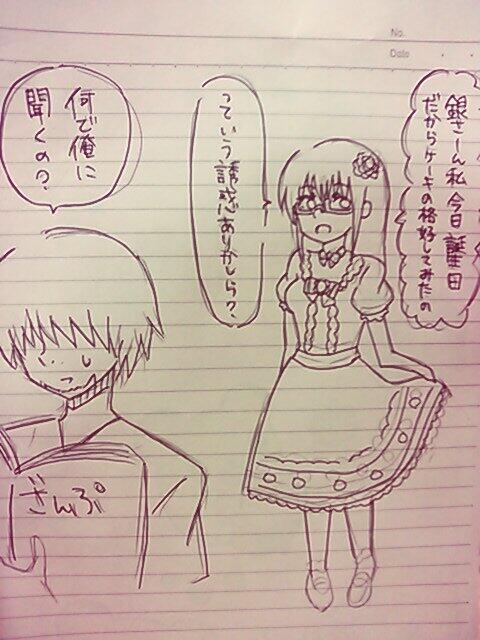 No.
Date
銀さーん私今日誕生日
だからケーキの格好してみたの
っていう誘惑ありかしら?
何で俺に
聞くの?
ざんぷ